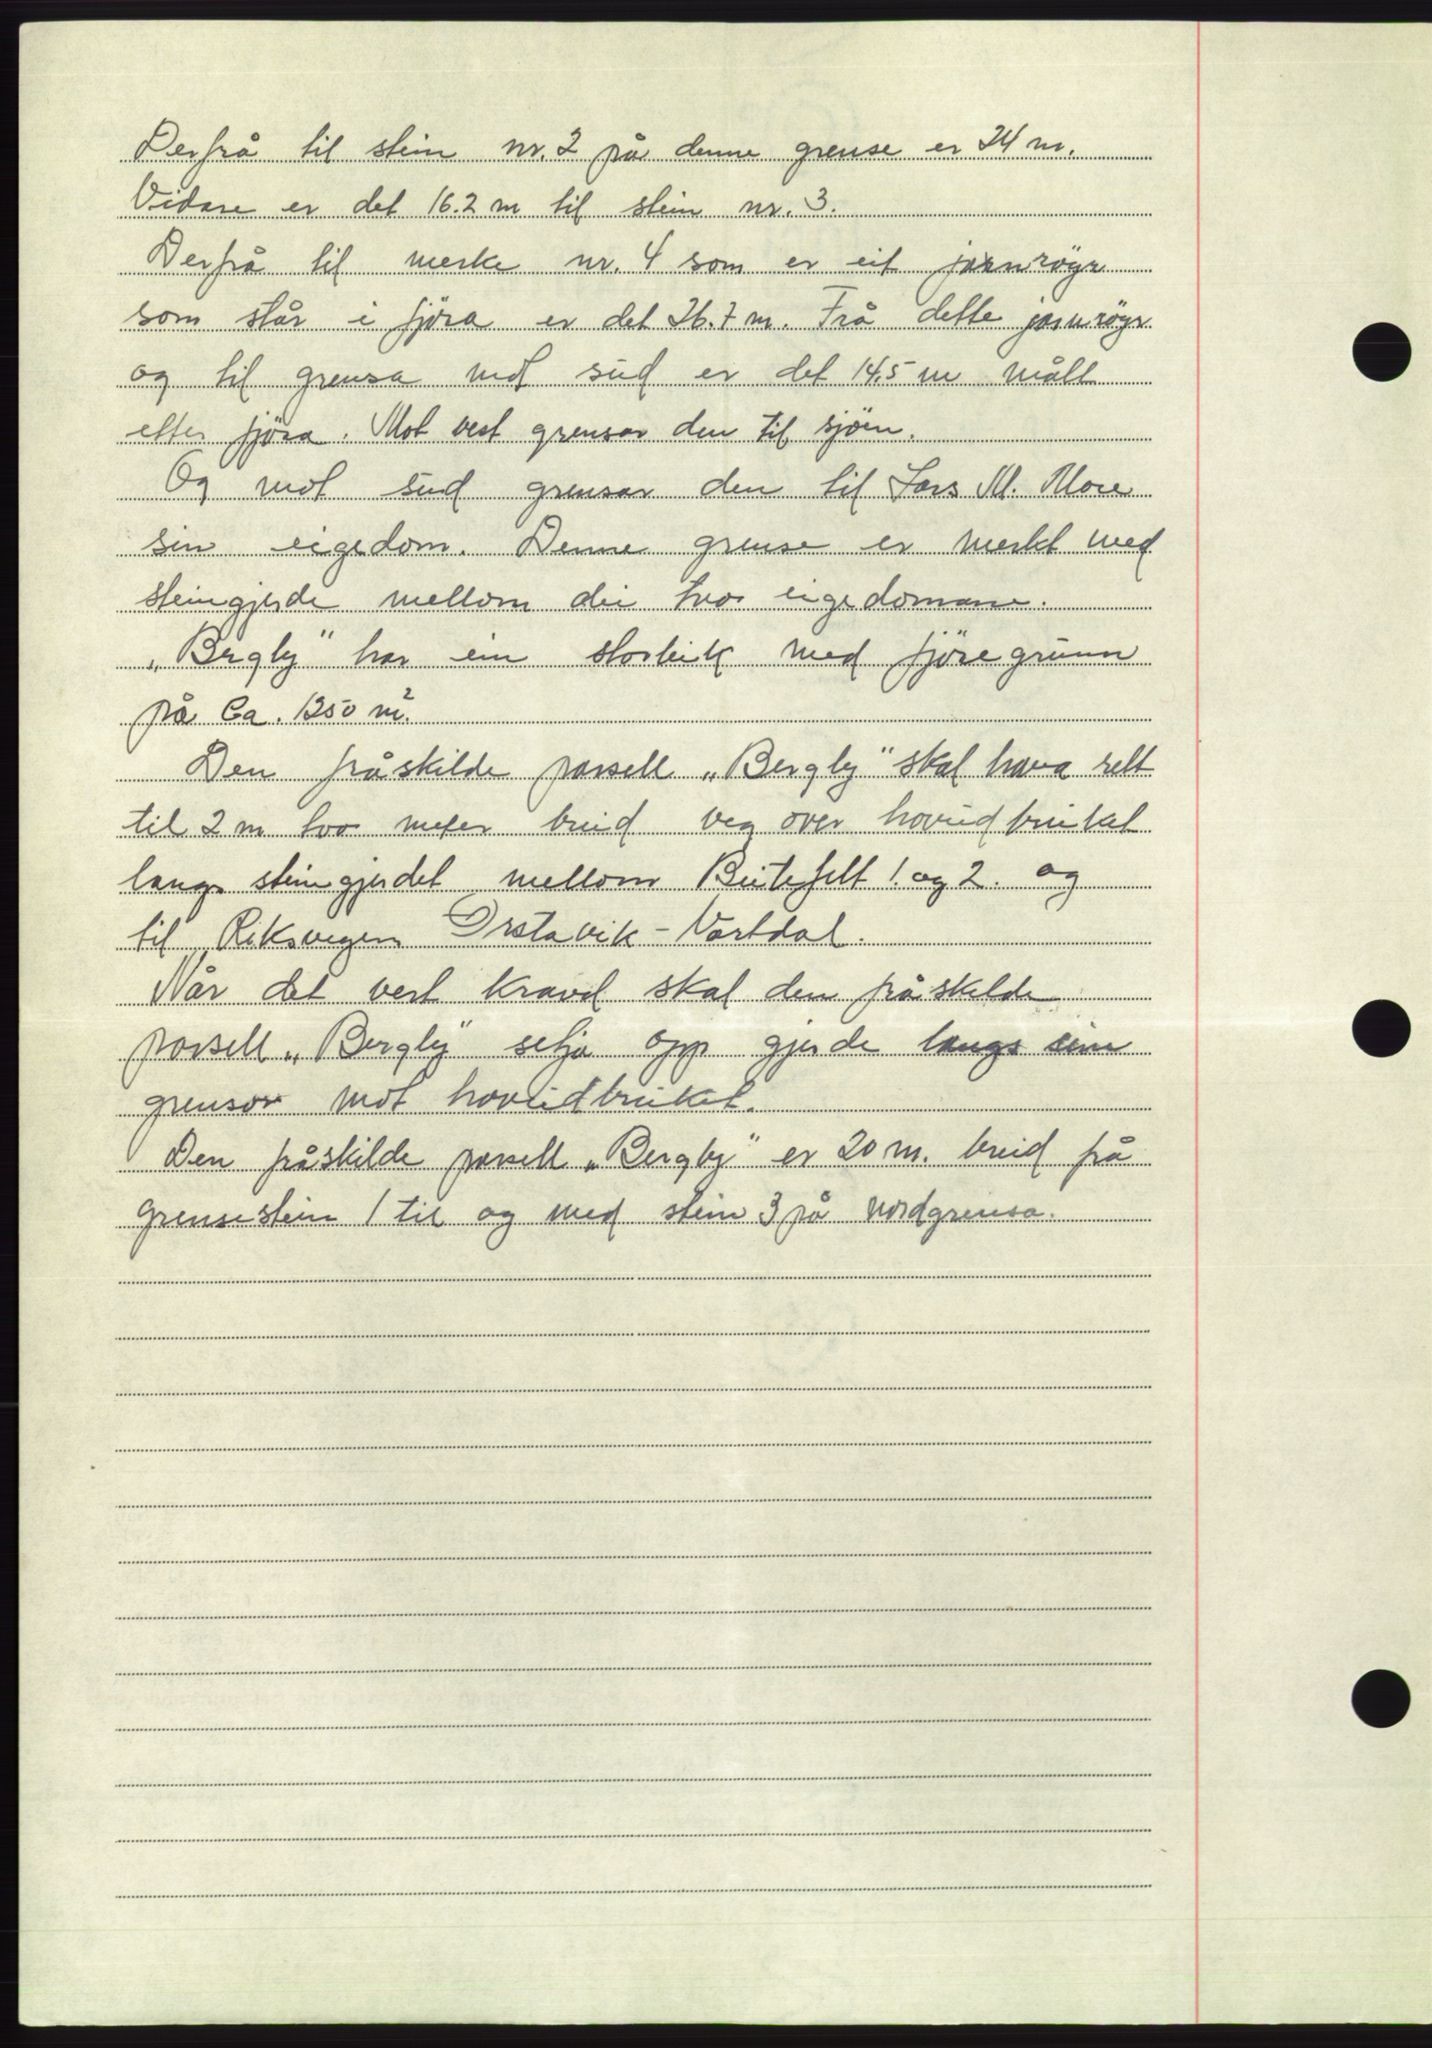 Derfrå til stein nr. 2 på denne grense er 24 m.
Vidare er det 16.2 m til stein nr. 3.
Derfrå til merke nr. 4 som er eit jarnröyr
som står i fjöra er det 26.7 m. Frå dette jarnröyr
og til grensa mot sud er det 14.5 m målt
etter fjöra. Mot vest grensar den til sjöen.
Og mot sud grensar den til Lars M. More
sin eigedom. Denne grense er merkt med
steingjerde mellom dei tvo eigedomane.
„Bergly" har ein storleik med fjöregrunn
på Ca. 1350 m².
Den fråskilde parsell „Bergly" skal hava rett
til 2 m tvo meter breid veg over hovudbruket
langs steingjerdet mellom Beitefelt 1. og 2. og
til Riksvegen Ørstavik - Vartdal.
Når det vert kravd skal den fråskilde
parsell „Bergly" setja opp gjerde langs sine
grensor mot hovudbruket.
Den fråskilde parsell „Bergly" er 20 m. breid frå
grensestein 1 til og med stein 3 på nordgrensa.